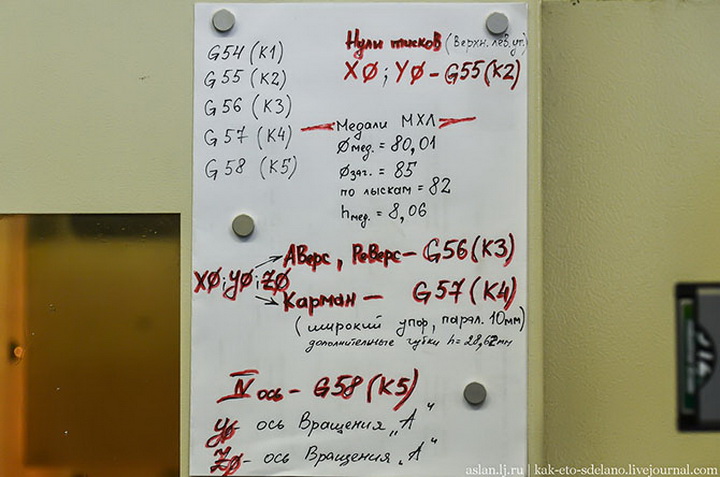 G54 (K1)
G55 (K2)
G56 (K3)
G57 (K4)
G58 (K5)
Нули тисков (Верхн. лев. уг.)
XØ; YØ – G55 (K2)
Медали МХЛ
Ø мед. = 80,01
Ø заг. = 85
по лыскам = 82
h мед. = 8,06
XØ; YØ; ZØ
Аверс, Реверс – G56 (K3)
Карман – G57 (K4)
(широкий упор, парал. 10мм)
дополнительные губки h = 28,62мм
IV ось – G58 (K5)
YØ ось Вращения „А“
ZØ – ось Вращения „А“
aslan.lj.ru | kak-eto-sdelano.livejournal.com